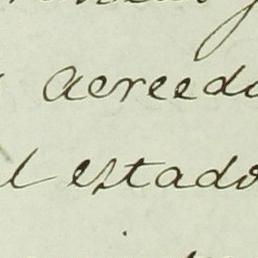 acreedo
l estado